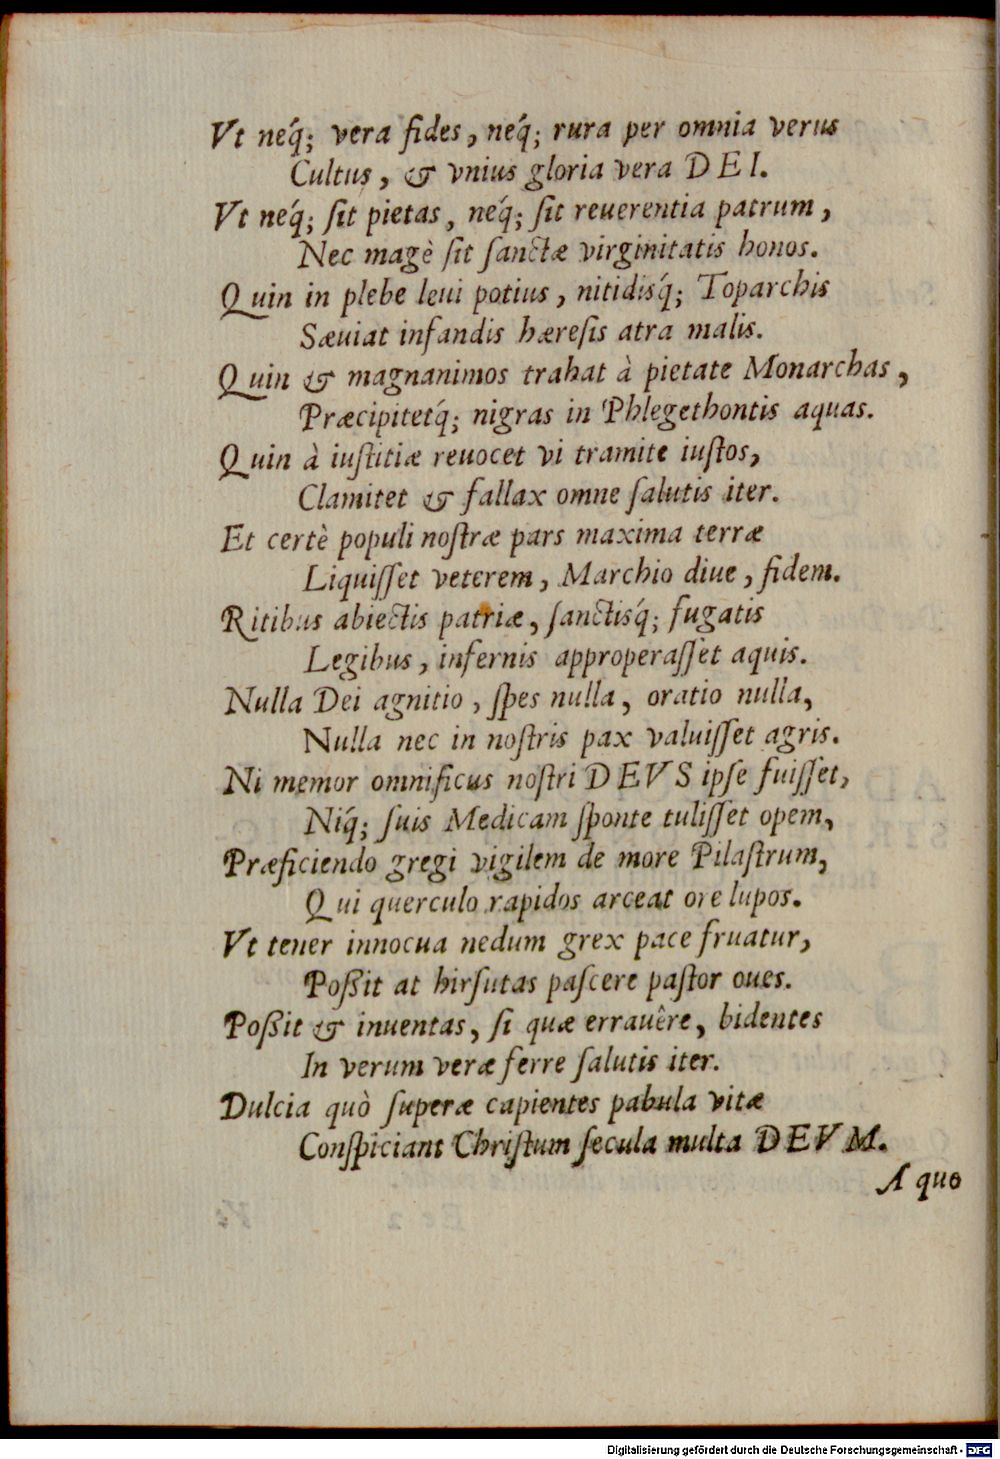 Vt neq́; vera fides, neq́; rura per omnia verus
Cultus, & vnius gloria vera DEI.
Vt neq́; ſit pietas, neq́; ſit reuerentia patrum,
Nec magè ſit ſanctæ virginitatis honos.
Quin in plebe leui potius, nitidisq́; Toparchis
Sæuiat infandis hæreſis atra malis.
Quin & magnanimos trahat à pietate Monarchas,
Præcipitetq́; nigras in Phlegethontis aquas.
Quin à iuſtitiæ reuocet vi tramite iuſtos,
Clamitet & fallax omne ſalutis iter.
Et certè populi noſtræ pars maxima terræ
Liquiſſet veterem, Marchio diue, fidem.
Ritibus abiectis patriæ, ſanctisq́; fugatis
Legibus, infernis approperaſſet aquis.
Nulla Dei agnitio, ſpes nulla, oratio nulla,
Nulla nec in noſtris pax valuiſſet agris.
Ni memor omnificus noſtri DEVS ipſe fuiſſet,
Niq́; ſuis Medicam ſponte tuliſſet opem,
Præficiendo gregi vigilem de more Pilaſtrum,
Qui querculo rapidos arceat ore lupos.
Vt tener innocua nedum grex pace fruatur,
Poßit at hirſutas paſcere paſtor oues.
Poßit & inuentas, ſi quæ errauêre, bidentes
In verum veræ ferre ſalutis iter.
Dulcia quò ſuperæ capientes pabula vitæ
Conſpiciant Chriſtum ſecula multa DEVM.
A quo
Digitalisierung gefördert durch die Deutsche Forschungsgemeinschaft - DFG